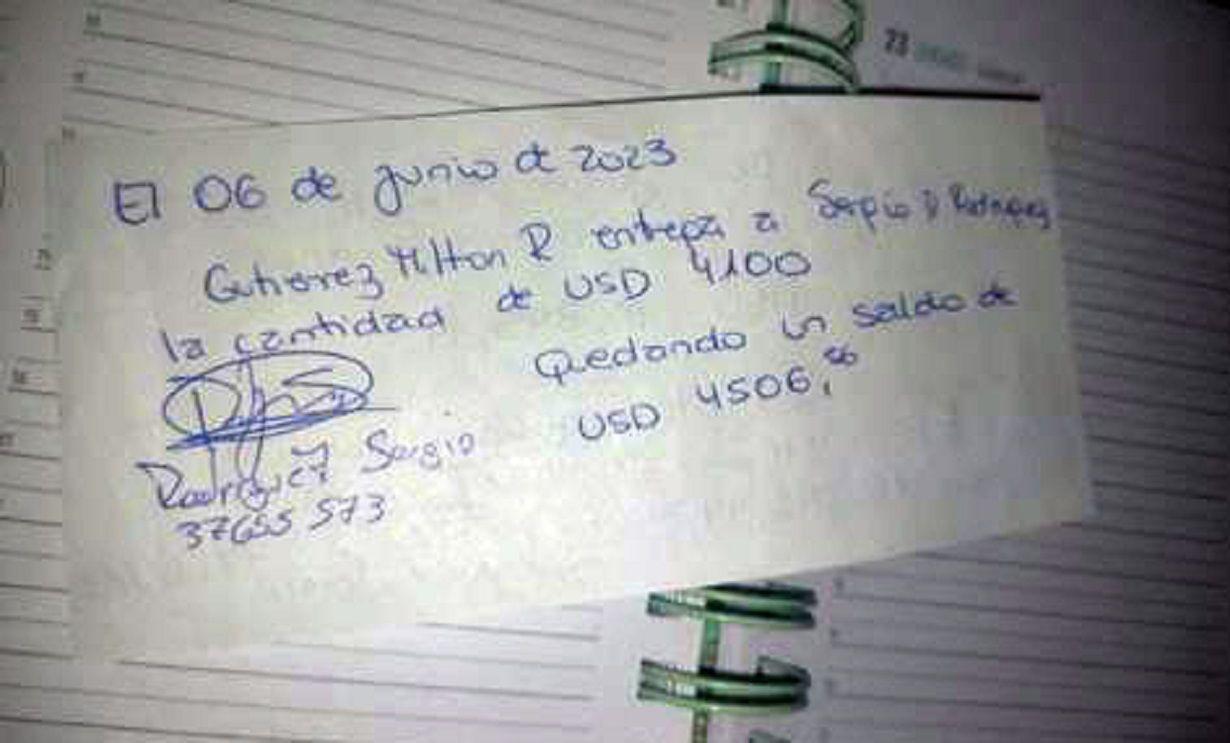 23
El 06 de junio de 2023
Gutierrez Milton R entrega a Sergio D Rodriguez
la cantidad de USD 4100
Quedando un saldo de
USD 4506,00
Rodriguez Sergio
37655573